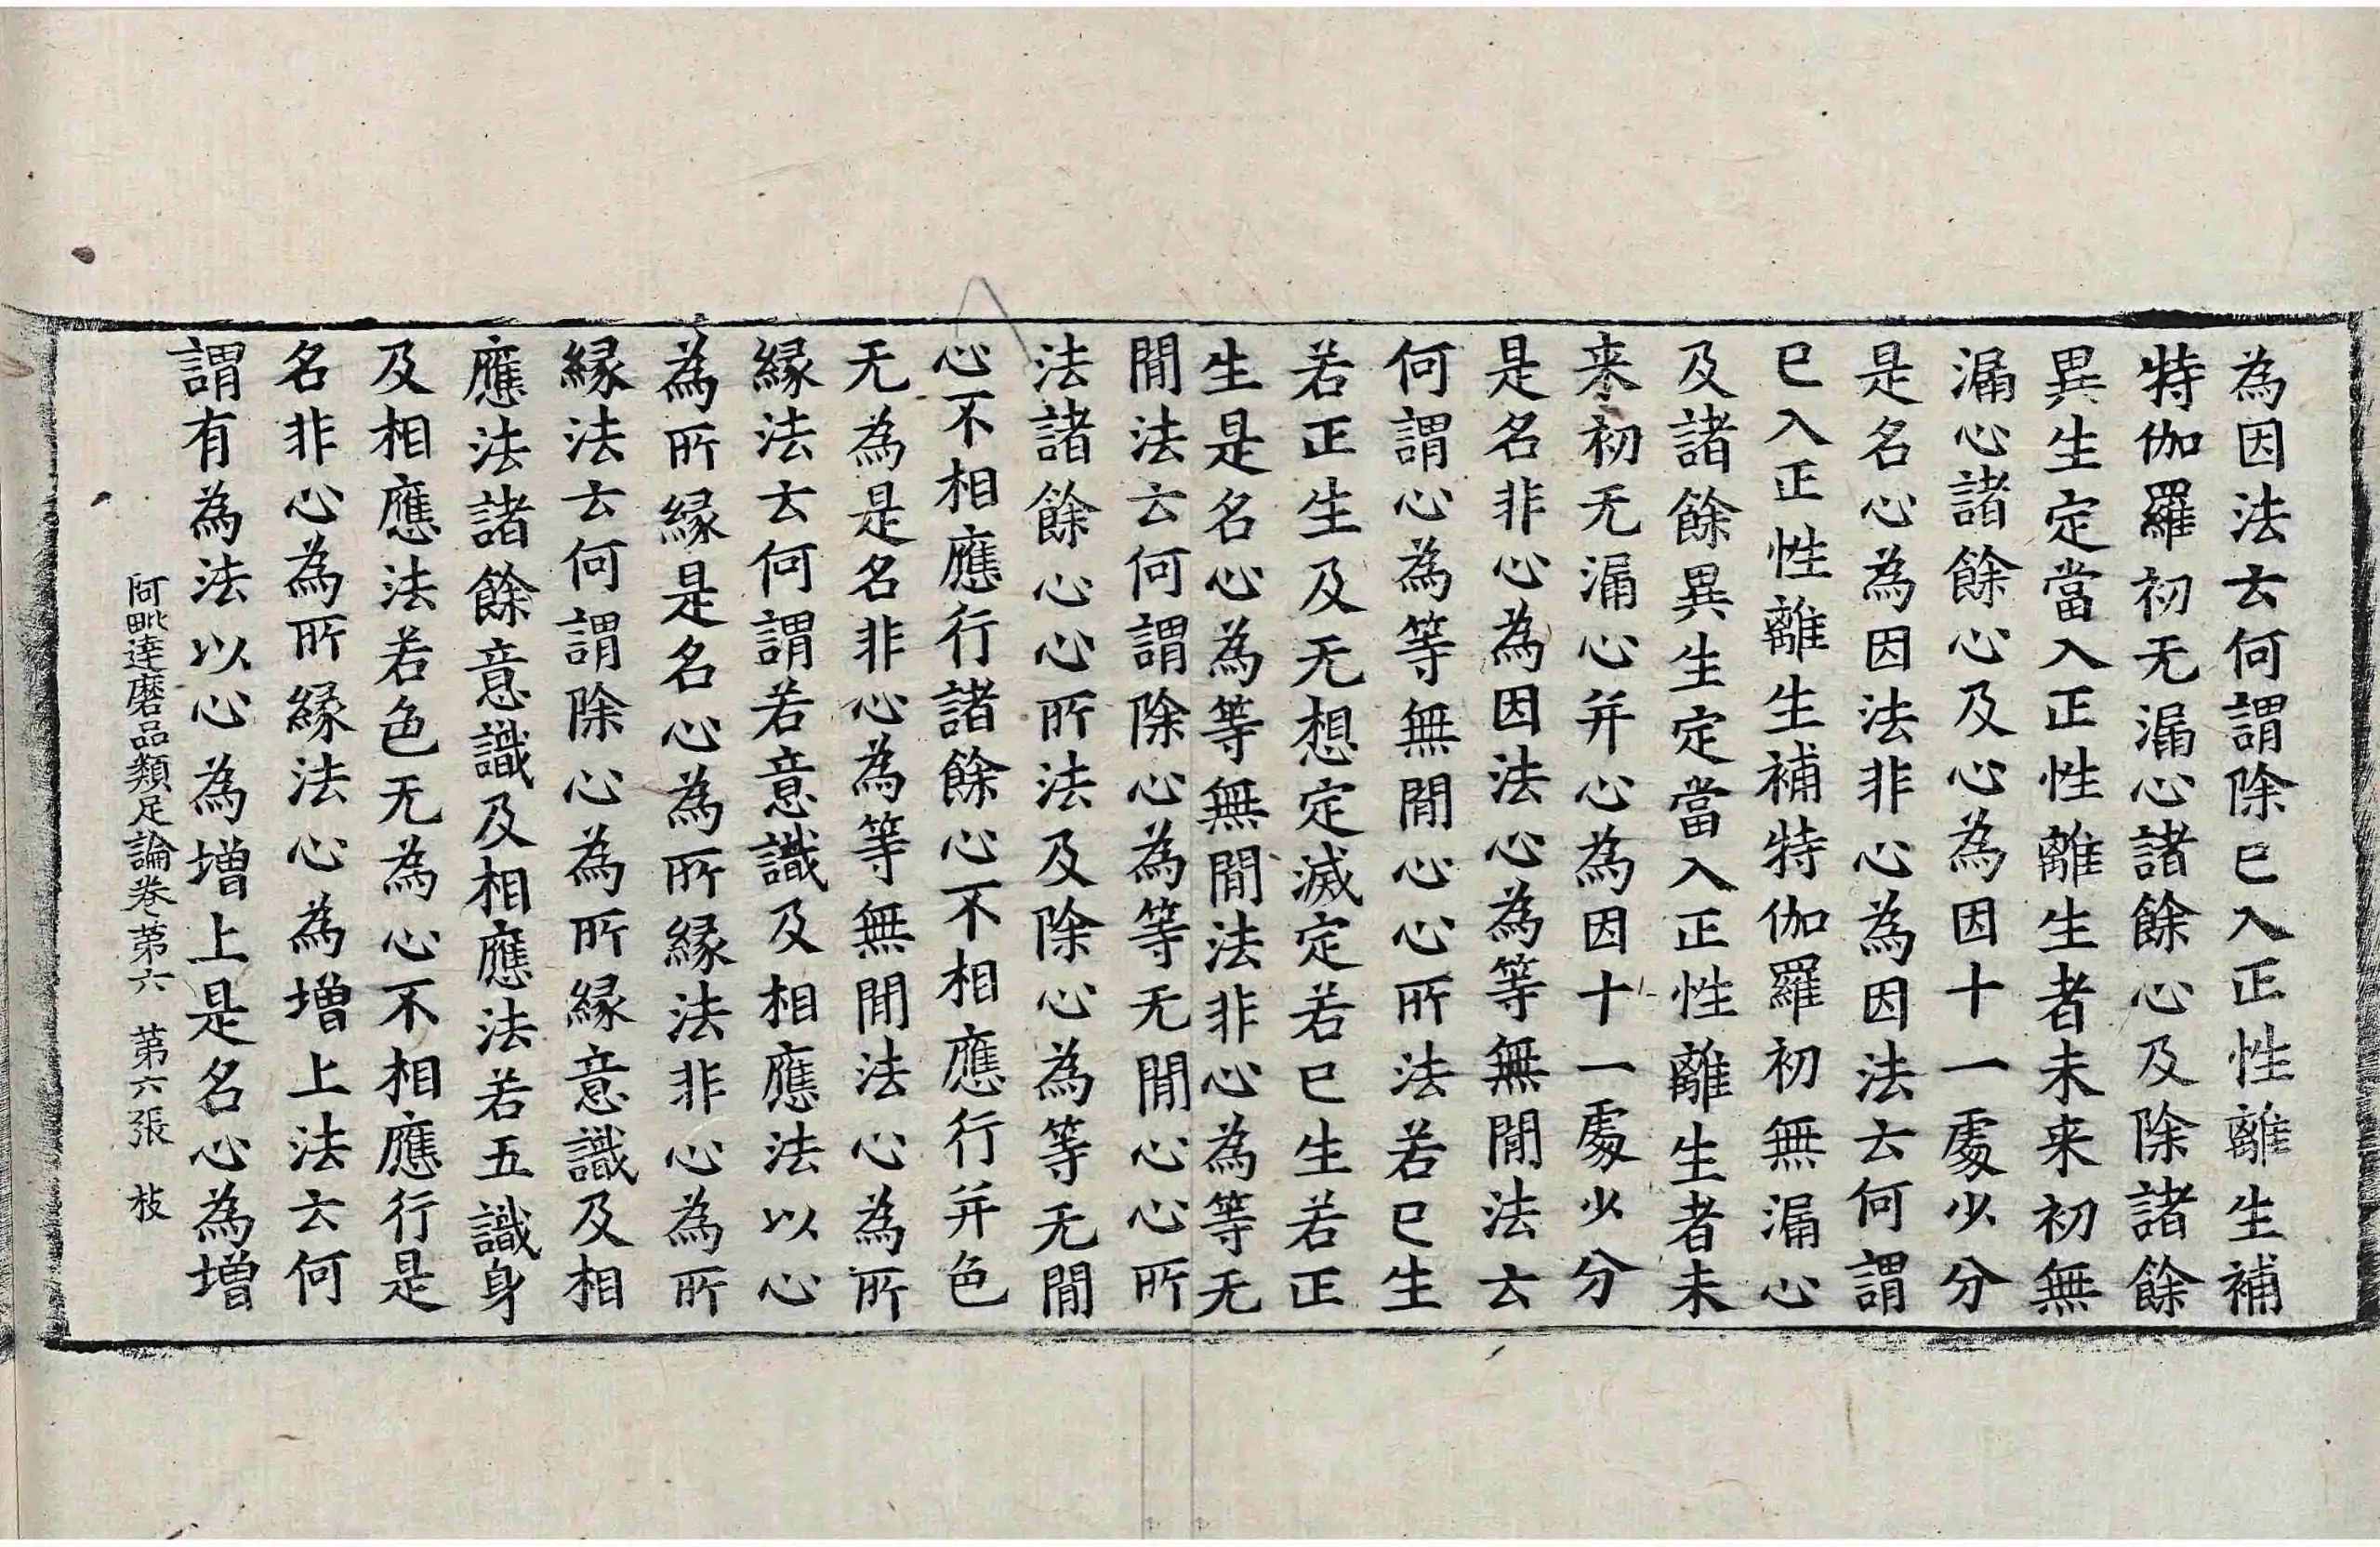 為因法云何謂除已入正性離生補
特伽羅初无漏心諸餘心及除諸餘
異生定當入正性離生者未来初無
漏心諸餘心及心為因十一處少分
是名心為因法非心為因法云何謂
已入正性離生補特伽羅初無漏心
及諸餘異生定當入正性離生者未
来初无漏心并心為因十一處少分
是名非心為因法心為等無閒法云
何謂心為等無閒心心所法若已生
若正生及无想定滅定若已生若正
生是名心為等無閒法非心為等无
閒法云何謂除心為等无閒心心所
法諸餘心心所法及除心為等无閒
心不相應行諸餘心不相應行并色
无為是名非心為等無閒法心為所
緣法云何謂若意識及相應法以心
為所緣是名心為所緣法非心為所
緣法云何謂除心為所緣意識及相
應法諸餘意識及相應法若五識身
及相應法若色无為心不相應行是
名非心為所緣法心為增上法云何
謂有為法以心為增上是名心為增
阿毗達磨品類足論卷第六 第六張 枝